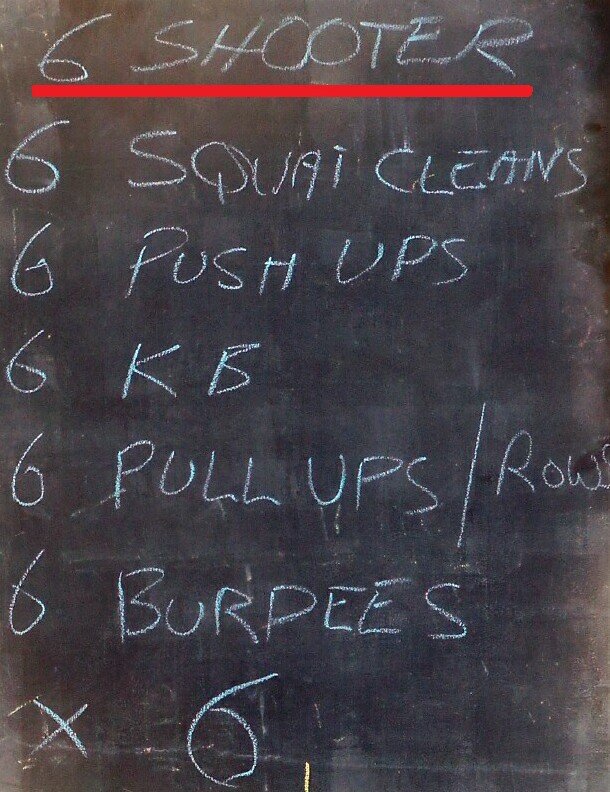 6 SHOOTER
6 SQUAT CLEANS
6 PUSH UPS
6 KB
6 PULL UPS / ROWS
6 BURPEES
X 6